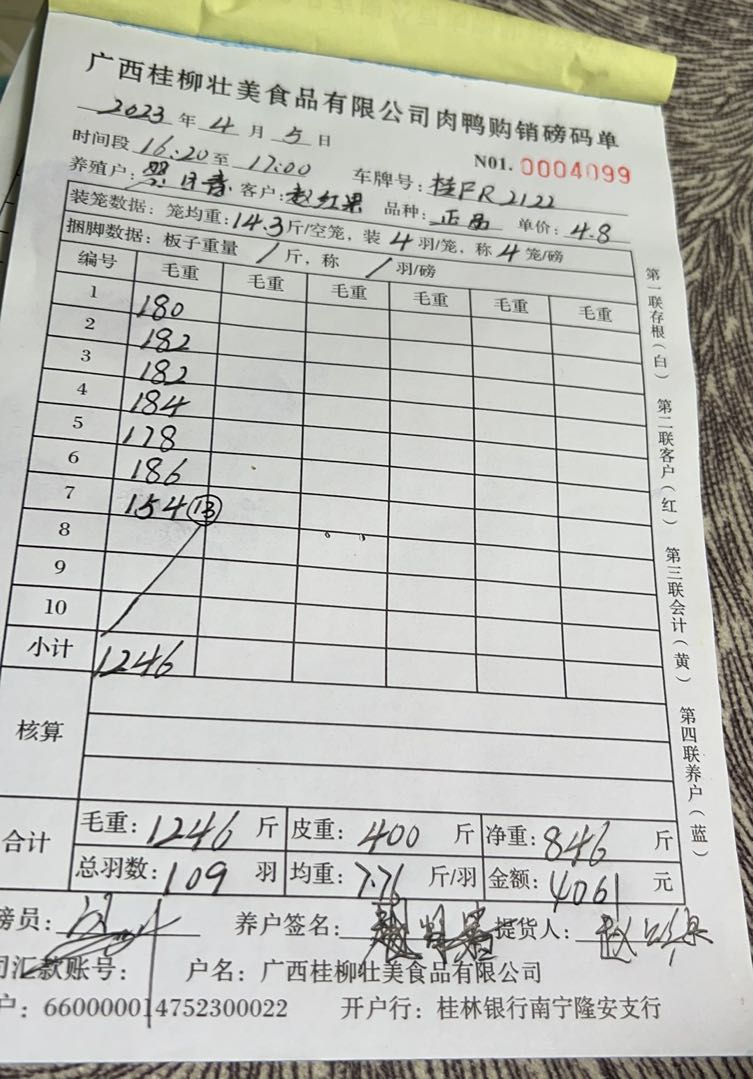 广西桂柳壮美食品有限公司肉鸭购销磅码单
2023 年 4 月 5 日
N01. 0004099
时间段 16:20 至 17:00 车牌号: 桂FR2122
养殖户: 客户: 赵红果 品种: 正品 单价: 4.8
装笼数据: 笼均重: 14.3 斤/空笼, 装 4 羽/笼, 称 4 笼/磅
捆脚数据: 板子重量 / 斤, 称 / 羽/磅
编号 毛重 毛重 毛重 毛重 毛重 毛重
1 180
2 182
3 182
4 184
5 178
6 186
7 154 13
8
9
10
小计 1246
核算
合计 毛重: 1246 斤 皮重: 400 斤 净重: 846 斤
总羽数: 109 羽 均重: 7.76 斤/羽 金额: 4061 元
磅员: 养户签名: 提货人: 赵红果
司汇款账号: 户名: 广西桂柳壮美食品有限公司
户: 660000014752300022 开户行: 桂林银行南宁隆安支行
第一联存根(白) 第二联客户(红) 第三联会计(黄) 第四联养户(蓝)